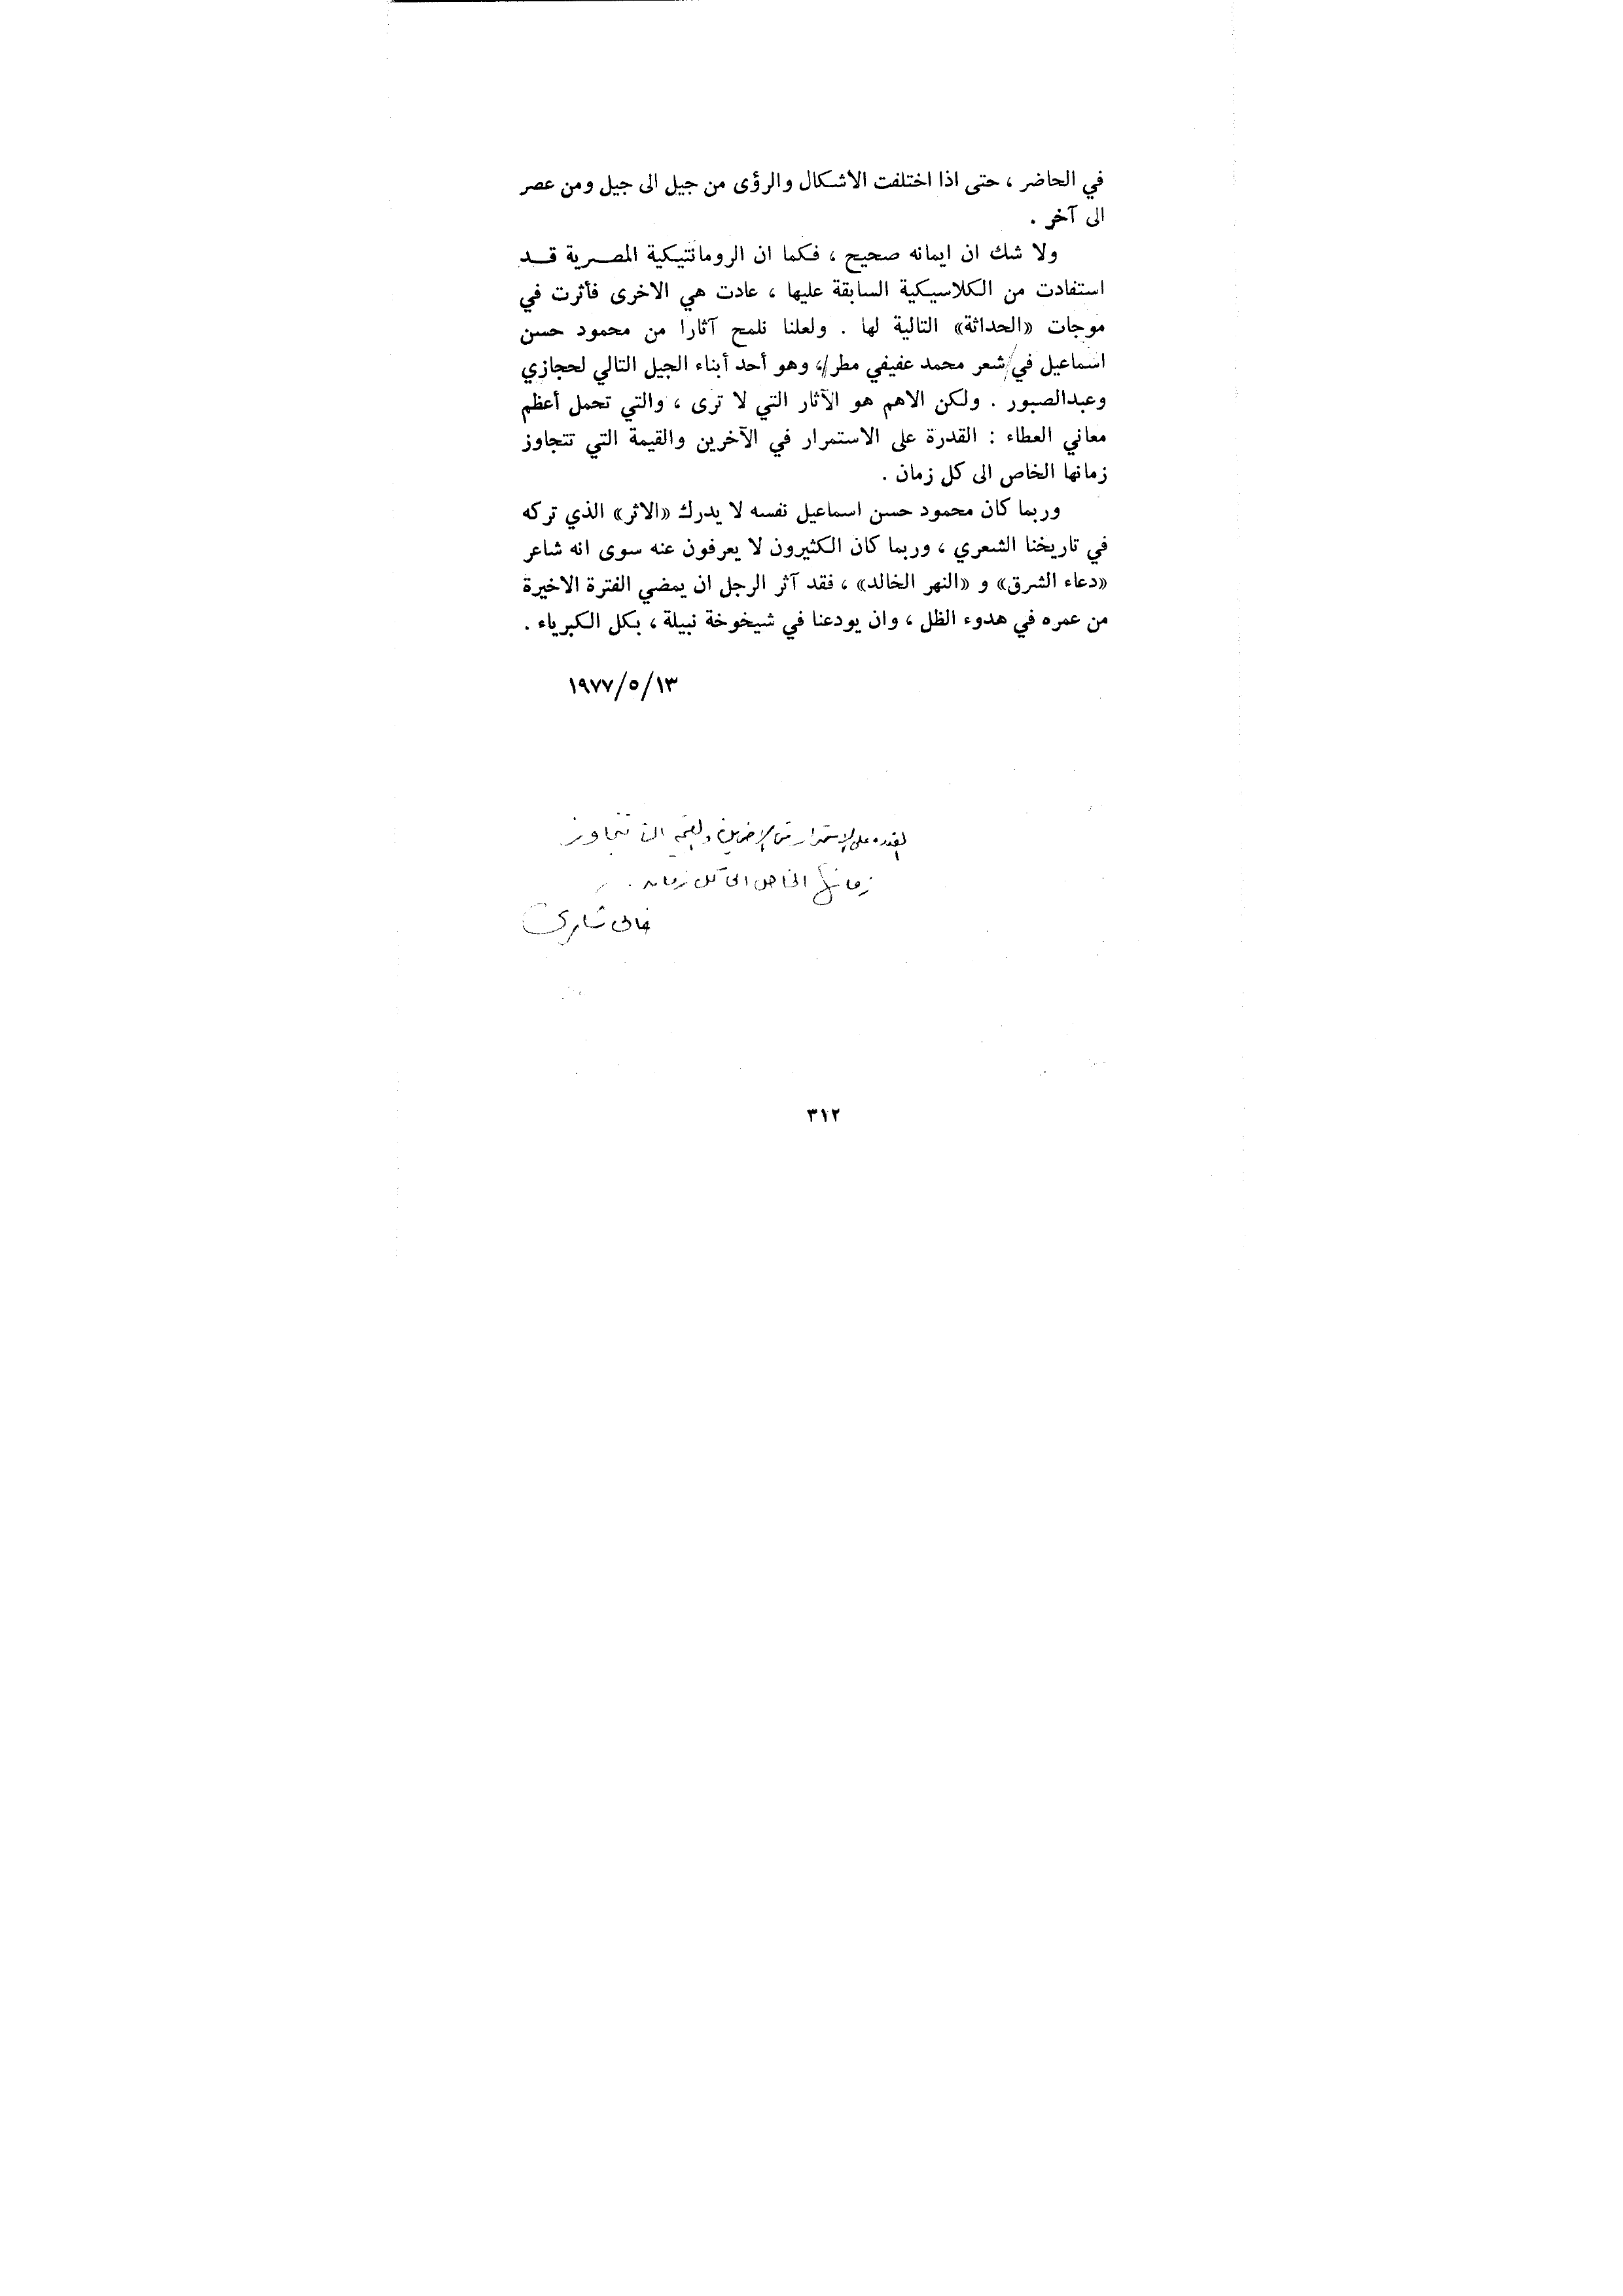 في الحاضر ، حتى اذا اختلفت الاشكال والرؤى من جيل الى جيل ومن عصر
الى آخر .
ولا شك ان ايمانه صحيح ، فكما ان الرومانتيكية المصرية قد
استفادت من الكلاسيكية السابقة عليها ، عادت هي الاخرى فأثرت في
موجات «الحداثة» التالية لها . ولعلنا نلمح آثارا من محمود حسن
اسماعيل في شعر محمد عفيفي مطر ، وهو أحد أبناء الجيل التالي لحجازي
وعبدالصبور . ولكن الاهم هو الآثار التي لا ترى ، والتي تحمل أعظم
معاني العطاء : القدرة على الاستمرار في الآخرين والقيمة التي تتجاوز
زمانها الخاص الى كل زمان .
وربما كان محمود حسن اسماعيل نفسه لا يدرك «الاثر» الذي تركه
في تاريخنا الشعري ، وربما كان الكثيرون لا يعرفون عنه سوى انه شاعر
«دعاء الشرق» و «النهر الخالد» ، فقد آثر الرجل ان يمضي الفترة الاخيرة
من عمره في هدوء الظل ، وان يودعنا في شيخوخة نبيلة ، بكل الكبرياء .
١٩٧٧/٥/١٣
القدره على الاستمرار فى الاخرين والقيمه التى تتجاوز
زمانها الخاص الى كل زمان .
غالى شكرى
٣١٢